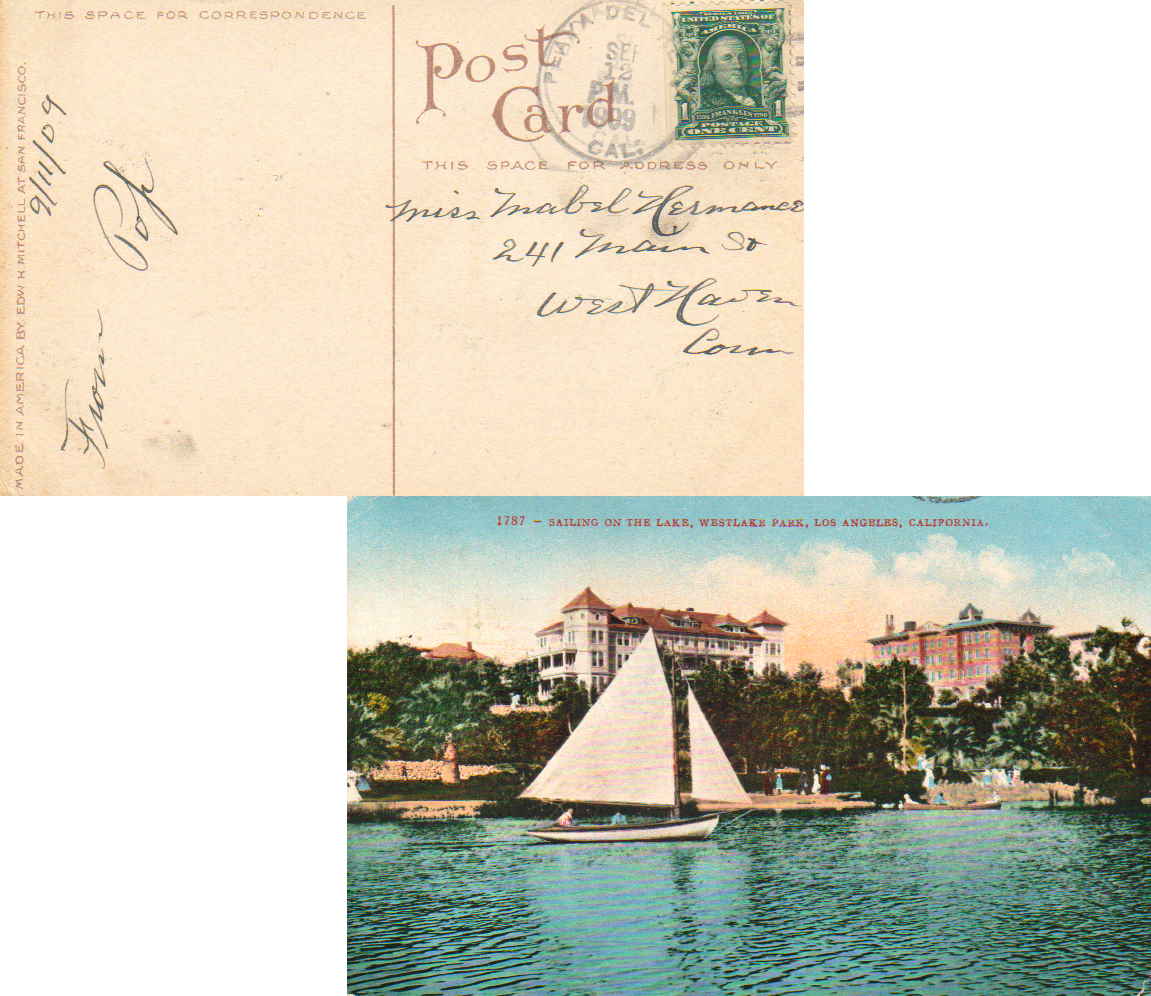 THIS SPACE FOR CORRESPONDENCE
MADE IN AMERICA BY EDW H MITCHELL AT SAN FRANCISCO.
9/11/09
From Pop
Post
Card
PLAYA DEL
SE
12
P.M.
1909
CAL.
SERIES 1902
UNITED STATES OF
AMERICA
1 FRANKLIN 1
POSTAGE
ONE CENT
THIS SPACE FOR ADDRESS ONLY
Miss Mabel Hermance
241 Main St
West Haven
Conn
1787 – SAILING ON THE LAKE, WESTLAKE PARK, LOS ANGELES, CALIFORNIA.